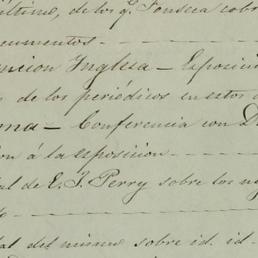 último, de los q. Fonseca sobr
cumentos.
ncion Inglesa — Exposició
s de los periódicos en estos
ma — Conferencia con D
ion á la exposicion
al de E. J. Perry sobre los ne
do
al del mismo sobre id. id.